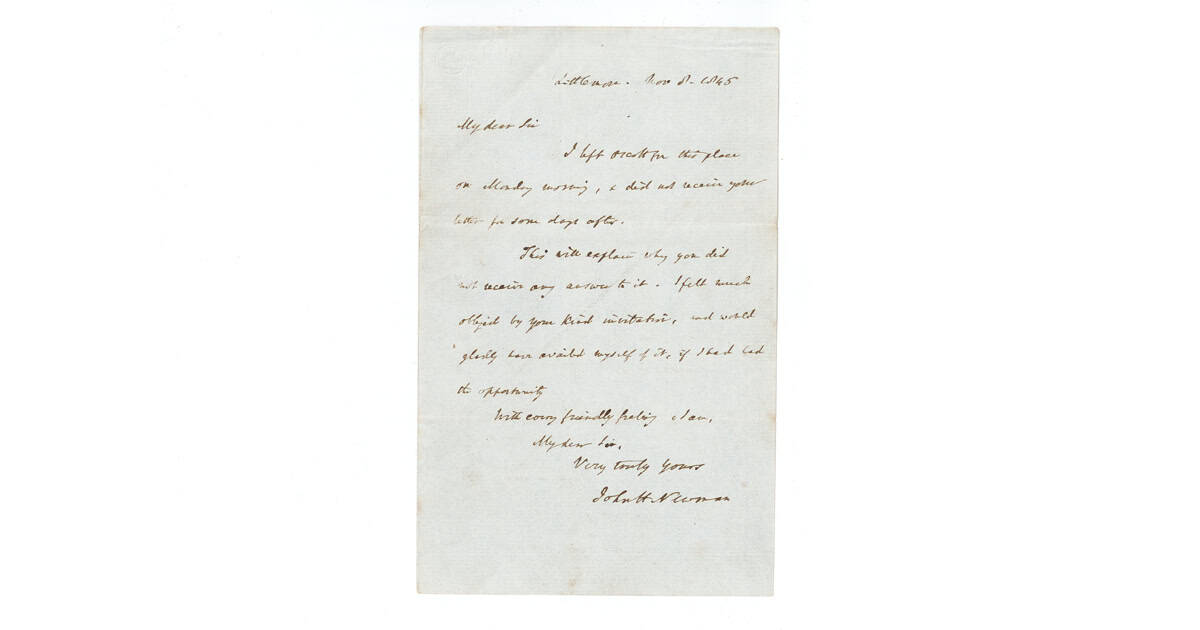 Littlemore. Nov 8. 1845
My dear Sir
I left Oscott for this place
on Monday morning, & did not receive your
letter for some days after.
This will explain why you did
not receive any answer to it. I felt much
obliged by your kind invitation, and would
gladly have availed myself of it, if I had had
the opportunity
With every friendly feeling I am,
My dear Sir,
Very truly Yours
John H Newman